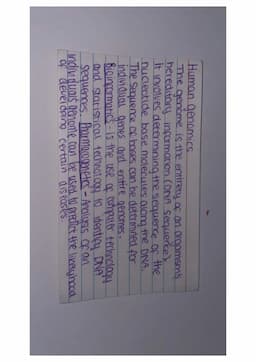 Human Genomics
The genome is the entirety of an organism's
hereditary information (DNA sequence).
It involves determining the sequence of the
nucleotide base molecules along the DNA.
The sequence of bases can be determined for
individual genes and entire genomes.
Bioinformatics - is the use of computer technology
and statistical technology to identify DNA
sequences. Pharmacogenetics - Analysis of an
individuals genome can be used to predict the likelyhood
of developing certain diseases.